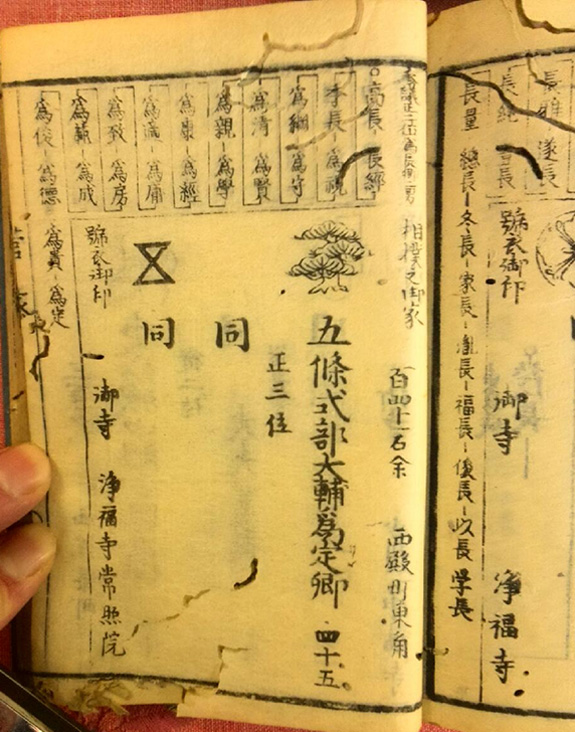 長雅 遂長
長純 宣長
長量 總長-冬長-家長-進長-福長-俊長-以長 学長
號衣御印 御寺 淨福寺
相撲之御家 百四十一石余 西殿町東角
高長 長經
季長 爲視
爲綱 爲守
爲清 爲賢
爲親 爲學
爲康 爲經
爲適 爲庸
爲致 爲房
爲範 爲成
爲俊 爲德
爲貴 爲定
五條式部大輔爲定卿 四十五
正三位
同
同
號衣御印 御寺 淨福寺常照院